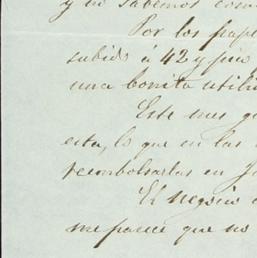 y no sabemos com
Por los pape
subido á 42 y pico
una bonita utili
Este mes q
esta, lo que en las
reembolsarlas en J
El negocio
me parece que no